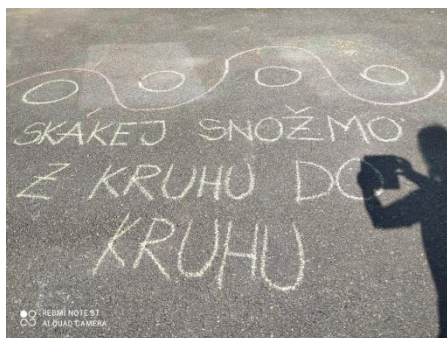 SKÁKEJ SNOŽMO
Z KRUHU DO
KRUHU
REDMI NOTE 8T
AI QUAD CAMERA